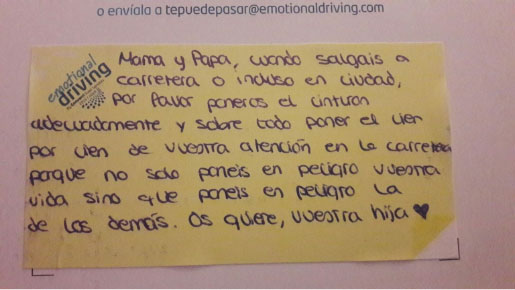 o envíala a tepuedepasar@emotionaldriving.com
emotional
driving
Mama y Papa, cuando salgais a
carretera o incluso en ciudad,
por favor poneros el cinturon
adecuadamente y sobre todo poner el cien
por cien de vuestra atención en la carretera
porque no solo poneis en peligro vuestra
vida sino que poneis en peligro la
de los demás. Os quiere, vuestra hija ♥